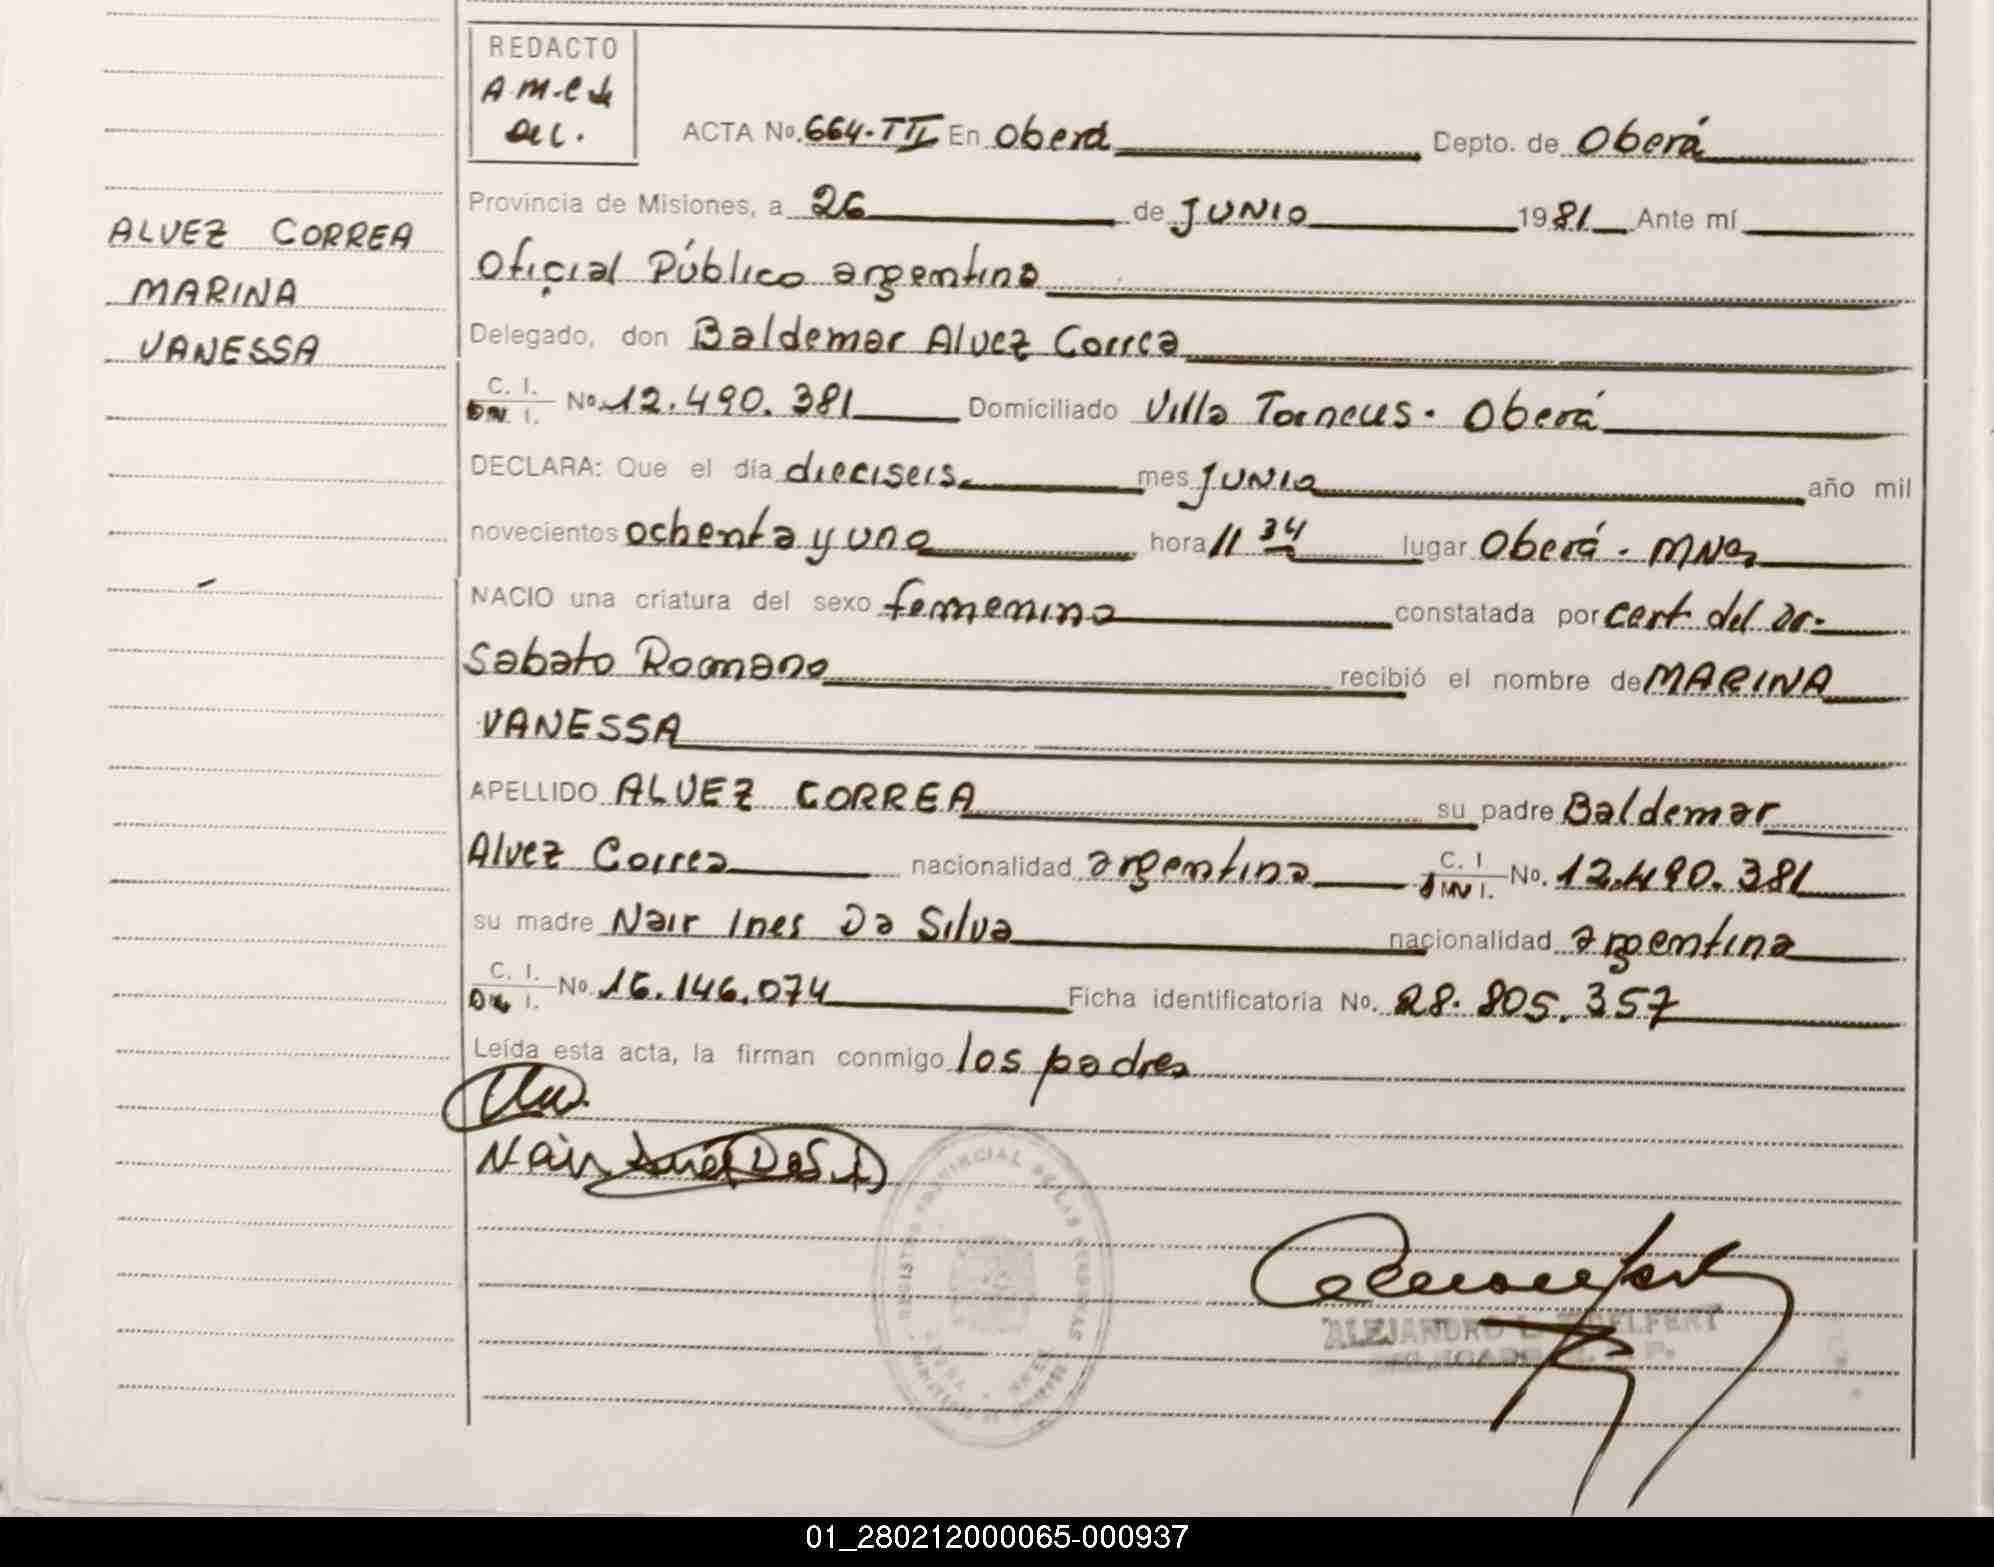 REDACTO
ACTA No. 664-III En Oberá Depto. de Oberá
Provincia de Misiones, a 26 de JUNIO 1981 Ante mí
ALVEZ CORREA
MARINA
VANESSA
Oficial Público argentino
Delegado, don Baldemar Alvez Correa
C. I.
D.N. I. No. 12.490.381 Domiciliado Villa Torneus. Oberá
DECLARA: Que el día dieciseis mes JUNIO año mil
novecientos ochenta y uno hora 11 34 lugar Oberá. MNes
NACIO una criatura del sexo femenino constatada por cert del Dr.
Sabato Romano recibió el nombre de MARINA
VANESSA
APELLIDO ALVEZ CORREA su padre Baldemar
Alvez Correa nacionalidad argentina C. I. DN I. No. 12.490.381
su madre Nair Ines Da Silva nacionalidad argentina
C. I.
DN I. No. 16.146.074 Ficha identificatoria No. 28.805.357
Leída esta acta, la firman conmigo los padres
Nair Inés Da S.
REGISTRO PROVINCIAL DE LAS PERSONAS
ALEJANDRO L.
01_280212000065-000937